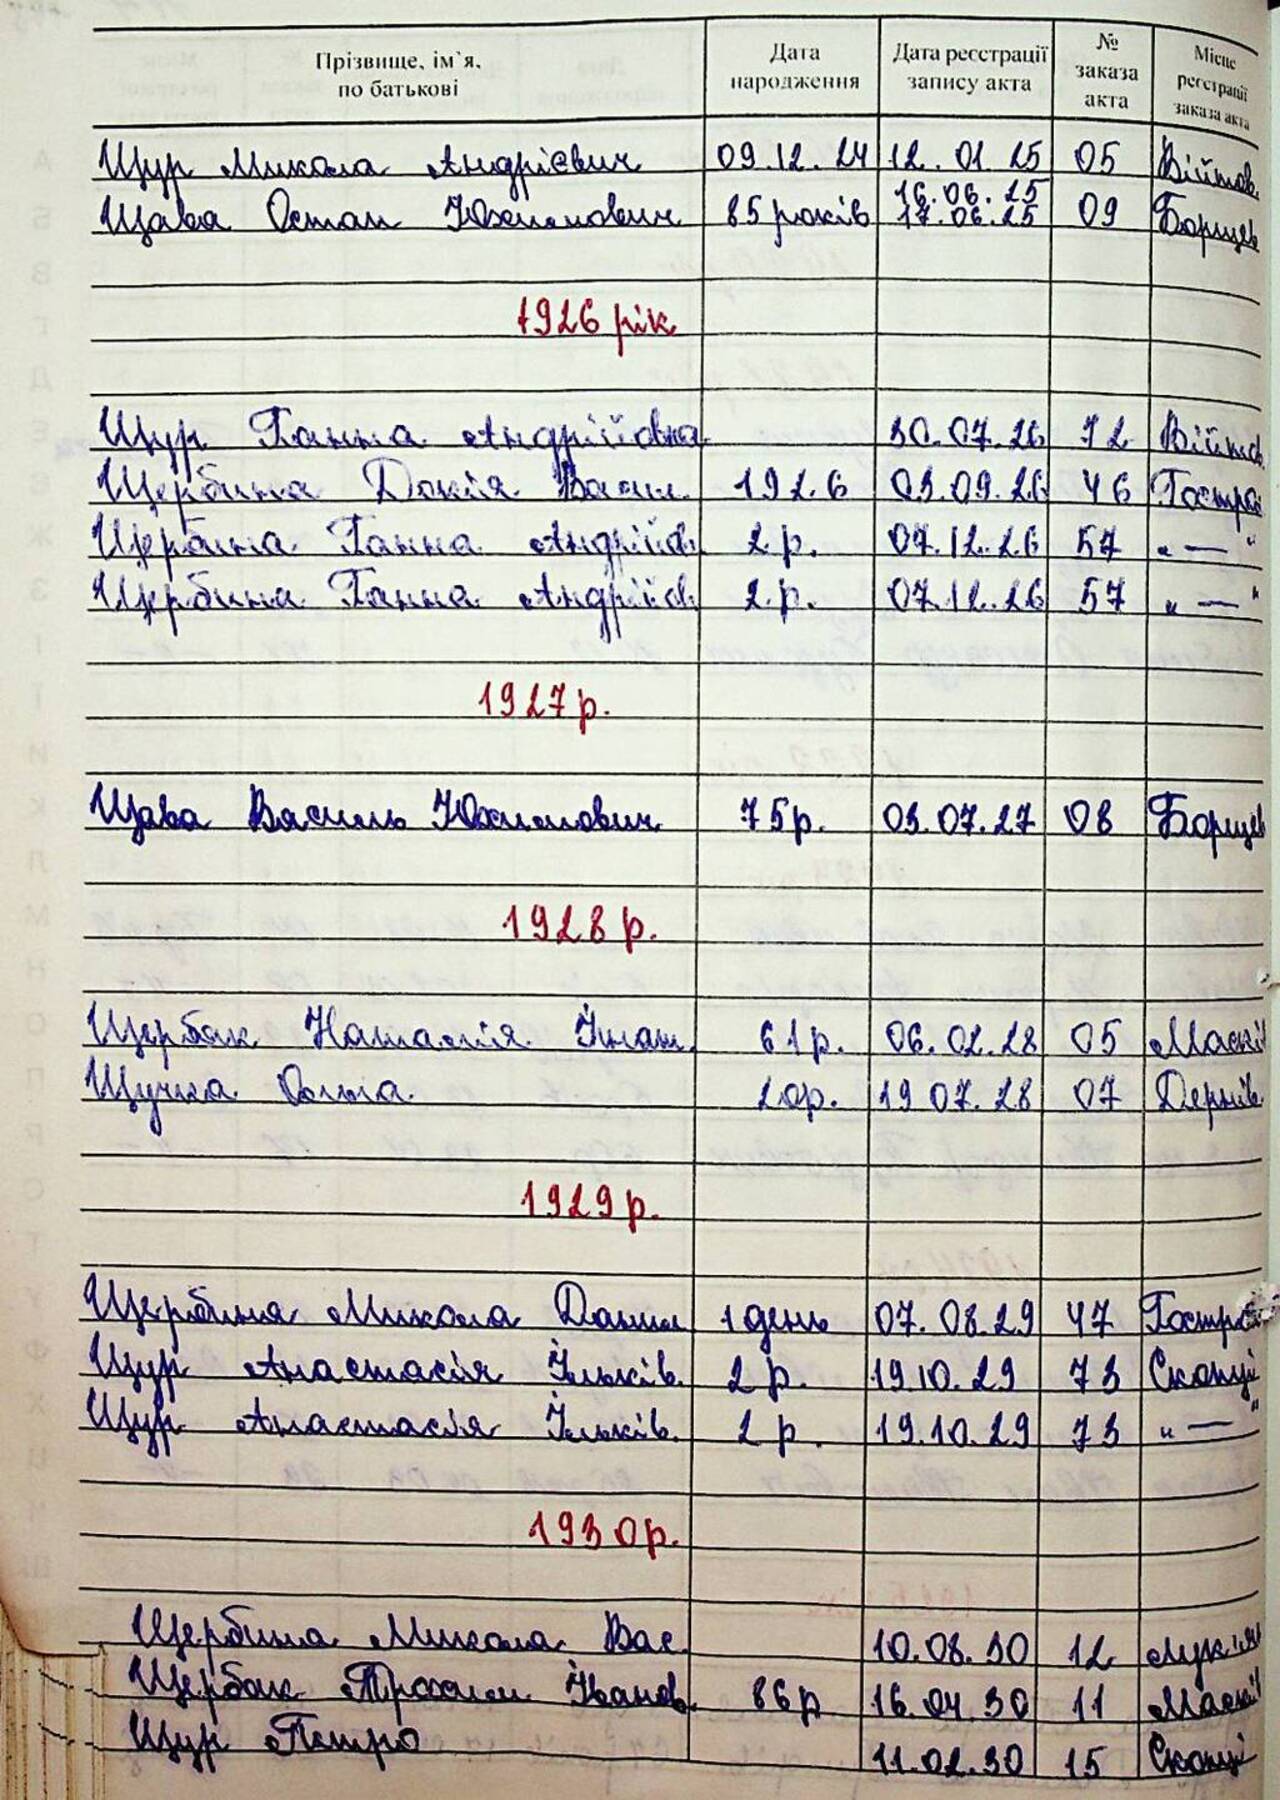 Прізвище, ім`я, по батькові Дата народження Дата реєстрації запису акта № заказа акта Місце реєстрації заказа акта
Щур Микола Андрієвич 09.12.24 12.01.25 05 Війтов.
16.06.25
Щава Остап Юхимович 85 років 17.06.25 09 Борщев
1926 рік
Щур Ганна Андрійовна 30.07.26 72 Війтов
Щербина Докія Васил. 1926 03.09.26 46 Гострої
Щербина Ганна Андрійов. 2 р. 07.12.26 57 „ — "
Щербина Ганна Андрійов. 2 р. 07.12.26 57 „ — "
1927 р.
Щава Василь Юхимович 75 р. 03.07.27 08 Борщев
1928 р.
Щербак Наталія Ігнат. 61 р. 06.02.28 05 Маскі
Щучка Ольга 20р. 19 07.28 07 Дернів
1929 р.
Щербина Микола Данил 1 день 07.08.29 47 Гострої
Щур Анастасія Ільків. 2 р. 19.10.29 73 Скопці
Щур Анастасія Ільків. 2 р. 19.10.29 73 „ — "
1930 р.
Щербина Микола Вас. 10.08.30 12 Лук'ян
Щербак Трохим Іванов. 86 р 16.04.30 11 Маскі
Щур Петро 11.02.30 15 Скопці